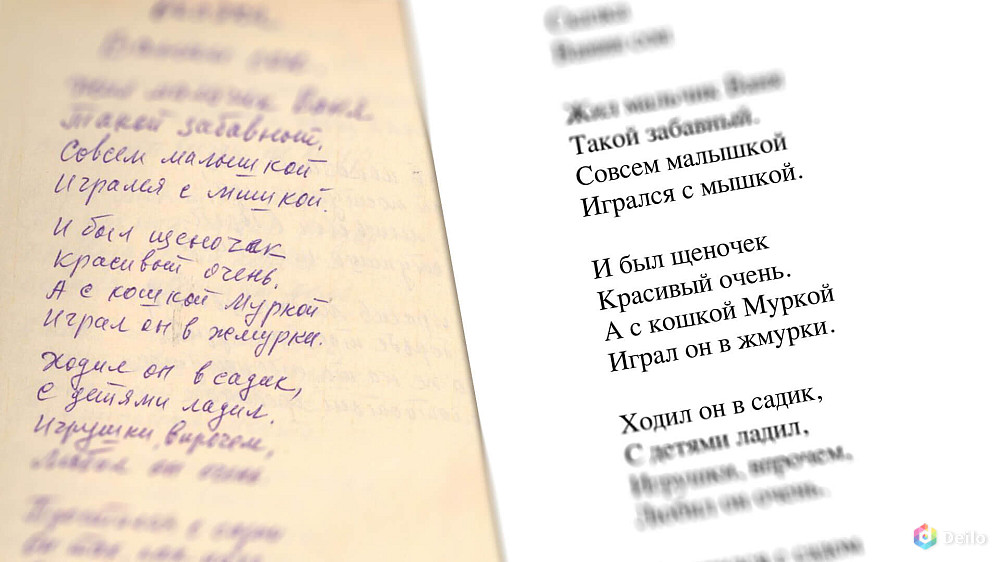 Жил мальчик Ваня
Такой забавный,
Совсем малышкой
Игрался с мишкой.
И был щеночек
Красивый очень.
А с кошкой Муркой
Играл он в жмурки.
Ходил он в садик,
С детями ладил.
Игрушки, впрочем,
Любил он очень.
Сказка
Ванин сон
Жил мальчик Ваня
Такой забавный.
Совсем малышкой
Игрался с мышкой.
И был щеночек
Красивый очень.
А с кошкой Муркой
Играл он в жмурки.
Ходил он в садик,
С детями ладил,
Игрушки, впрочем,
Любил он очень.
Deilo